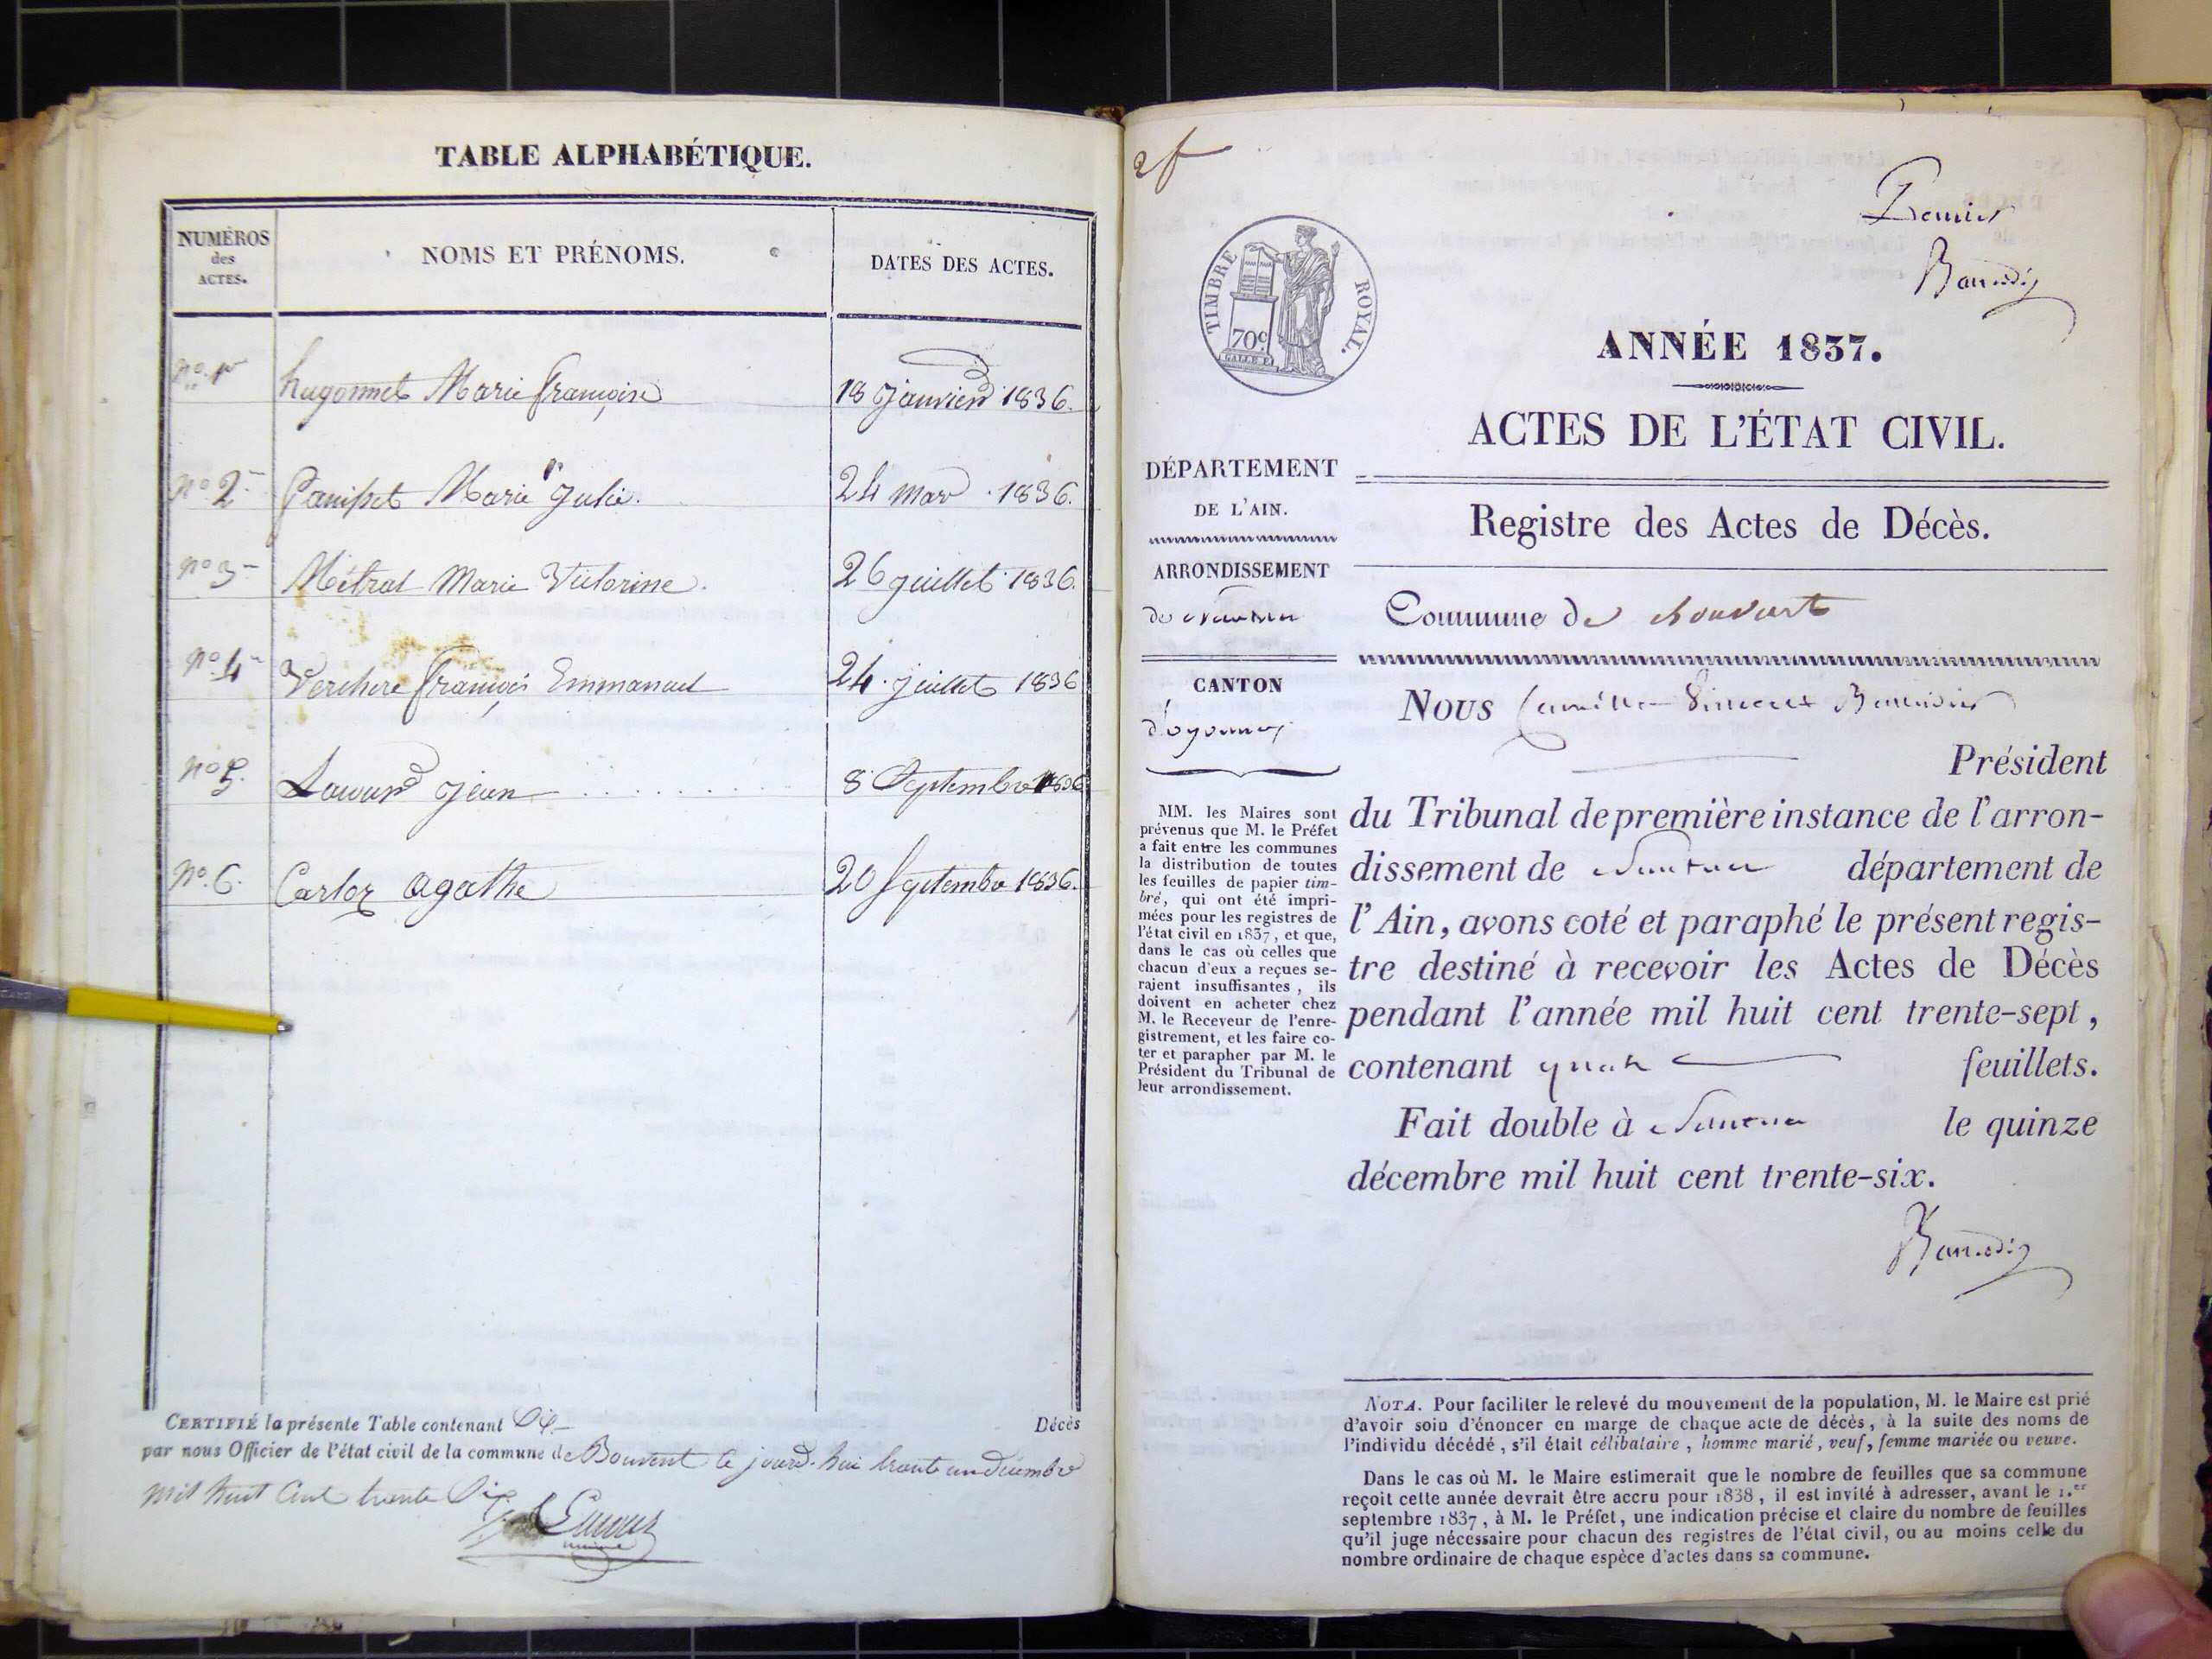 TABLE ALPHABÉTIQUE.
NUMÉROS
des
ACTES.
NOMS ET PRÉNOMS.
DATES DES ACTES.
nº 1er hugonnet Marie françoise 18 Janvier 1836.
nº 2 Panisset Marie Julie. 24 mar 1836.
nº 3 Métral Marie Victorine. 26 juillet 1836.
nº 4 Verchere françois Emmanuel 24 juillet 1836
nº 5. Jean 8 Septembre 1836
nº 6. Carloz agathe 20 Septembre 1836.
CERTIFIÉ la présente Table contenant Six Décès
par nous Officier de l'état civil de la commune de Bouvent le jourd'hui trente un décembre
mil huit Cent trente Six
2f
Premier
TIMBRE ROYAL.
70c
ANNÉE 1837.
ACTES DE L'ÉTAT CIVIL.
Registre des Actes de Décès.
Commune de Bouvent
DÉPARTEMENT
DE L'AIN.
ARRONDISSEMENT
de Nantua
CANTON
d'oyonnax
MM. les Maires sont
prévenus que M. le Préfet
a fait entre les communes
la distribution de toutes
les feuilles de papier tim-
bré, qui ont été impri-
mées pour les registres de
l'état civil en 1837, et que,
dans le cas où celles que
chacun d'eux a reçues se-
raient insuffisantes, ils
doivent en acheter chez
M. le Receveur de l'enre-
gistrement, et les faire co-
ter et parapher par M. le
Président du Tribunal de
leur arrondissement.
Nous Camille Vincent
Président
du Tribunal de première instance de l'arron-
dissement de Nantua département de
l'Ain, avons coté et paraphé le présent regis-
tre destiné à recevoir les Actes de Décès
pendant l'année mil huit cent trente-sept,
contenant quatre feuillets.
Fait double à Nantua le quinze
décembre mil huit cent trente-six.
NOTA. Pour faciliter le relevé du mouvement de la population, M. le Maire est prié
d'avoir soin d'énoncer en marge de chaque acte de décès, à la suite des noms de
l'individu décédé, s'il était célibataire, homme marié, veuf, femme mariée ou veuve.
Dans le cas où M. le Maire estimerait que le nombre de feuilles que sa commune
reçoit cette année devrait être accru pour 1838, il est invité à adresser, avant le 1.er
septembre 1837, à M. le Préfet, une indication précise et claire du nombre de feuilles
qu'il juge nécessaire pour chacun des registres de l'état civil, ou au moins celle du
nombre ordinaire de chaque espèce d'actes dans sa commune.